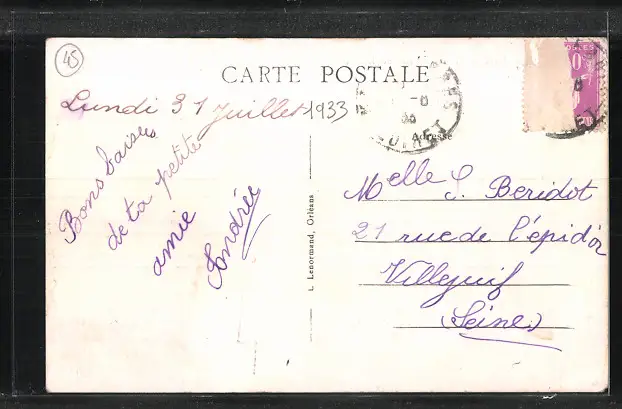 45
CARTE POSTALE
Lundi 31 juillet 1933
Bons baisers
de ta petite
amie
Andrée
L. Lenormand, Orléans
LOIRET
Adresse
Melle S. Beridot
21 rue de l'épi d'or
Villejuif
(Seine)